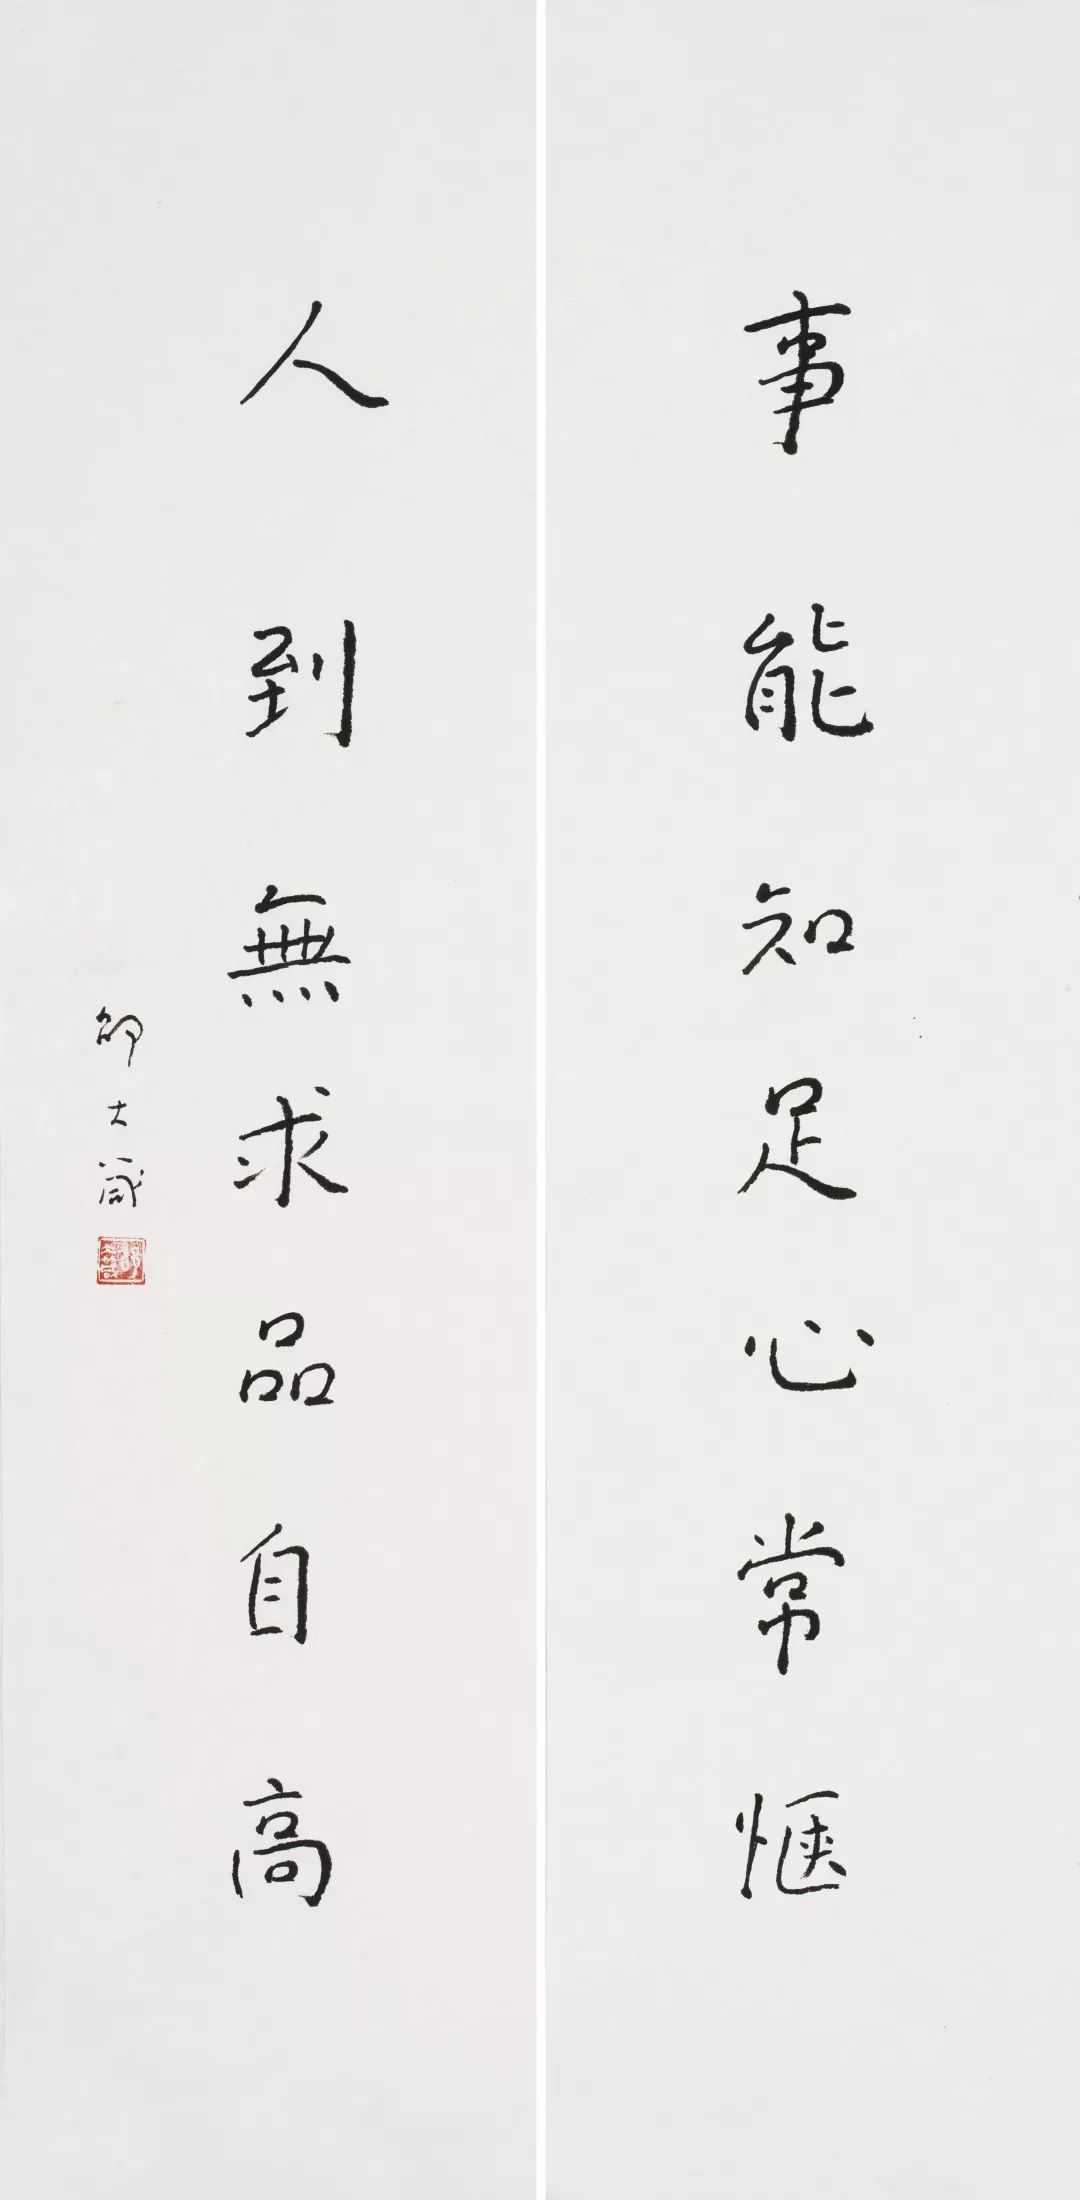 事能知足心常惬
人到無求品自高
邵大箴